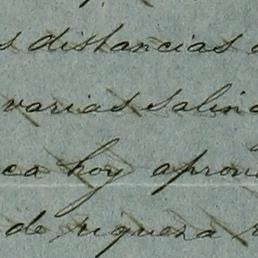 s distancias
varias salin
ca hoy apron
de riqueza